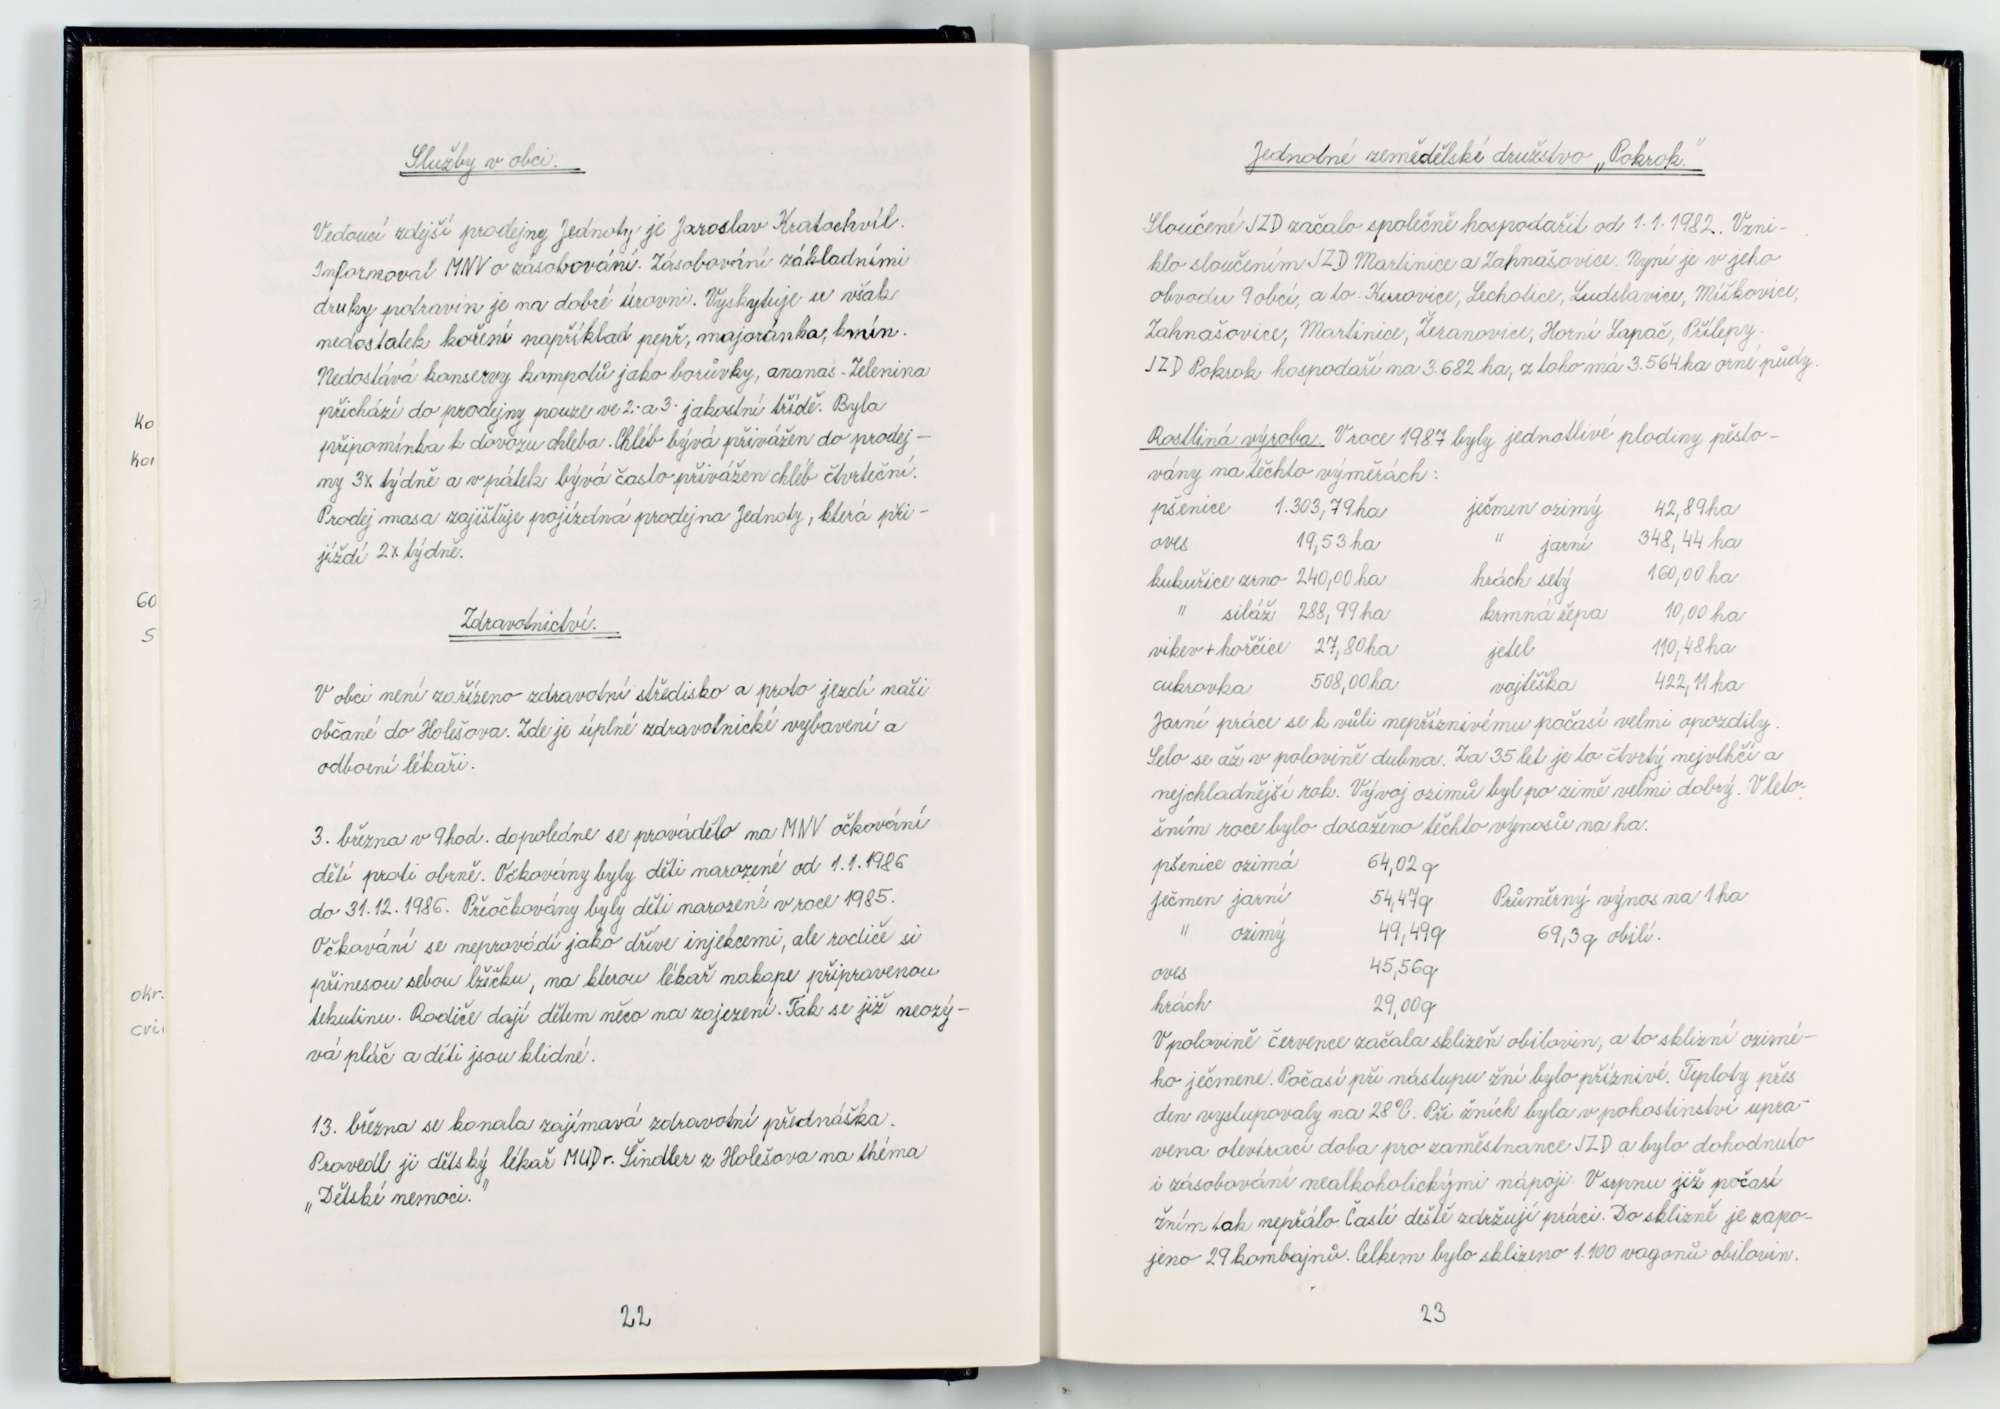 Služby v obci.
Vedoucí zdejší prodejny Jednoty je Jaroslav Kratochvíl.
Informoval MNV o zásobování. Zásobování základními
druky potravin je na dobré úrovni. Vyskytuje se však
nedostatek koření například pepř, majoránka, kmín.
Nedostává konservy kompotů jako borůvky, ananas. Zelenina
přichází do prodejny pouze ve 2. a 3. jakostní třídě. Byla
připomínka k dovozu chleba. Chléb bývá přivážen do prodej-
ny 3x týdně a v pátek bývá často přivážen chléb čtvrteční.
Prodej masa zajišťuje pojízdná prodejna Jednoty, která při-
jíždí 2x týdně.
Zdravotnictví.
V obci není zařízeno zdravotní středisko a proto jezdí naši
občané do Holešova. Zde je úplné zdravotnické vybavení a
odborní lékaři.
3. března v 9 hod. dopoledne se provádělo na MNV očkování
dětí proti obrně. Očkovány byly děti narozené od 1.1.1986
do 31.12.1986. Přeočkovány byly děti narozené v roce 1985.
Očkování se neprovádí jako dříve injekcemi, ale rodiče si
přinesou sebou lžičku, na kterou lékař nakape připravenou
tekutinu. Rodiče dají dětem něco na zajezení. Tak se již neozý-
vá pláč a děti jsou klidné.
13. března se konala zajímavá zdravotní přednáška.
Provedl ji dětský lékař MUDr. Šindler z Holešova na théma
„Dětské nemoci."
22
ko
kon
60
5
okr.
cvi
Jednotné zemědělské družstvo „Pokrok."
Sloučené JZD začalo společně hospodařit od 1.1.1982. Vzni-
klo sloučením JZD Martinice a Zahnašovice. Nyní je v jeho
obvodu 9 obcí, a to Kurovice, Lechotice, Ludslavice, Míškovice,
Zahnašovice, Martinice, Žeranovice, Horní Lapač, Přílepy.
JZD Pokrok hospodaří na 3.682 ha, z toho má 3.564 ha orné půdy.
Rostliná výroba. V roce 1987 byly jednotlivé plodiny pěsto-
vány na těchto výměrách:
pšenice 1.303,79 ha ječmen ozimý 42,89 ha
oves 19,53 ha " jarní 348,44 ha
kukuřice zrno 240,00 ha hrách setý 160,00 ha
" siláž 288,99 ha krmná řepa 10,00 ha
vikev + hořčice 27,80 ha jetel 110,48 ha
cukrovka 508,00 ha vojtěška 422,11 ha
Jarní práce se k vůli nepříznivému počasí velmi opozdily.
Selo se až v polovině dubna. Za 35 let je to čtvrtý nejvlhčí a
nejchladnější rok. Vývoj ozimů byl po zimě velmi dobrý. V leto-
šním roce bylo dosaženo těchto výnosů na ha.
pšenice ozimá 64,02 q
ječmen jarní 54,47 q Průměrný výnos na 1 ha
" ozimý 49,49 q 69,3 q obilí.
oves 45,56 q
hrách 29,00 q
V polovině července začala sklizeň obilovin, a to sklizní ozimé-
ho ječmene. Počasí při nástupu žní bylo příznivé. Teploty přes
den vystupovaly na 28°C. Při žních byla v pohostinství upra-
vena otevírací doba pro zaměstnance JZD a bylo dohodnuto
i zásobování nealkoholickými nápoji. V srpnu již počasí
žním tak nepřálo. Časté deště zdržují práci. Do sklizně je zapo-
jeno 29 kombajnů. Celkem bylo sklizeno 1.100 vagonů obilovin.
23